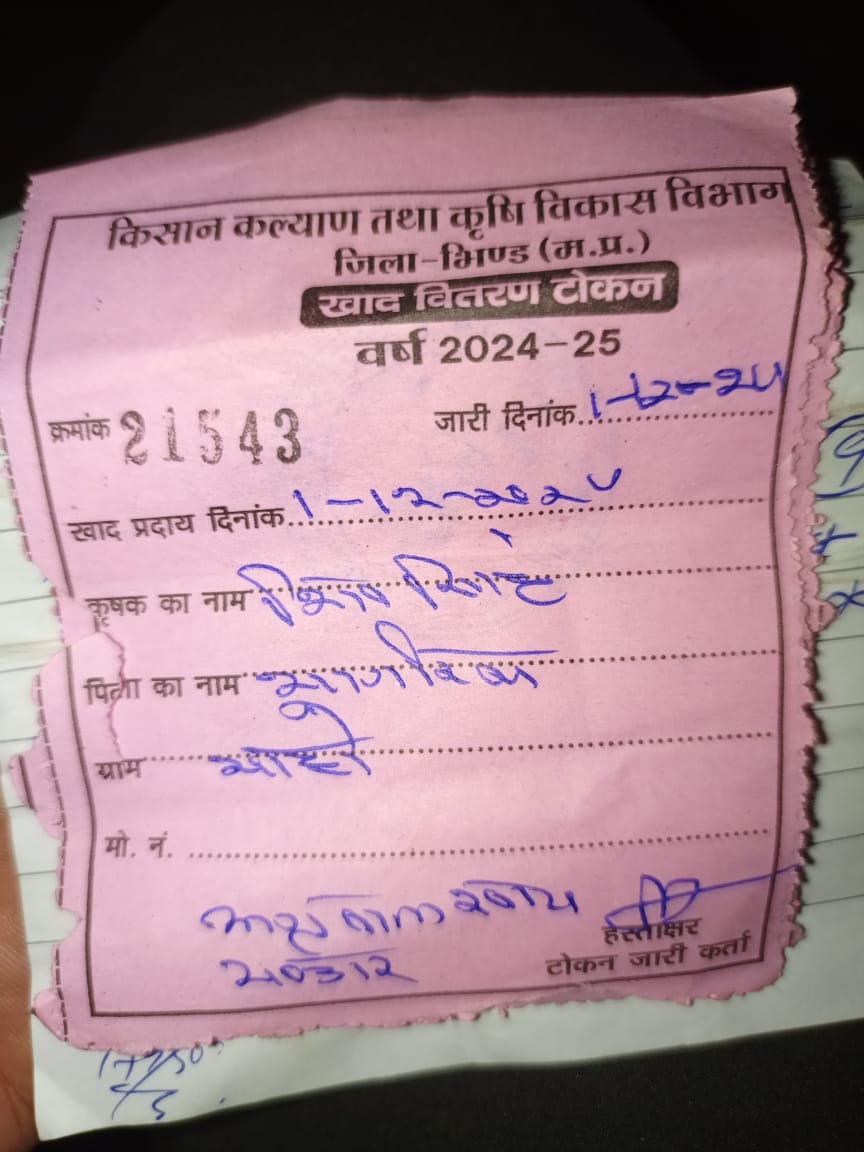 किसान कल्याण तथा कृषि विकास विभाग
जिला-भिण्ड (म.प्र.)
खाद वितरण टोकन
वर्ष 2024-25
क्रमांक 21543 जारी दिनांक 1-12-24
खाद प्रदाय दिनांक 1-12-2024
कृषक का नाम सिंह
पिता का नाम
ग्राम
मो. नं.
खाद्य
भण्डार
हस्ताक्षर
टोकन जारी कर्ता